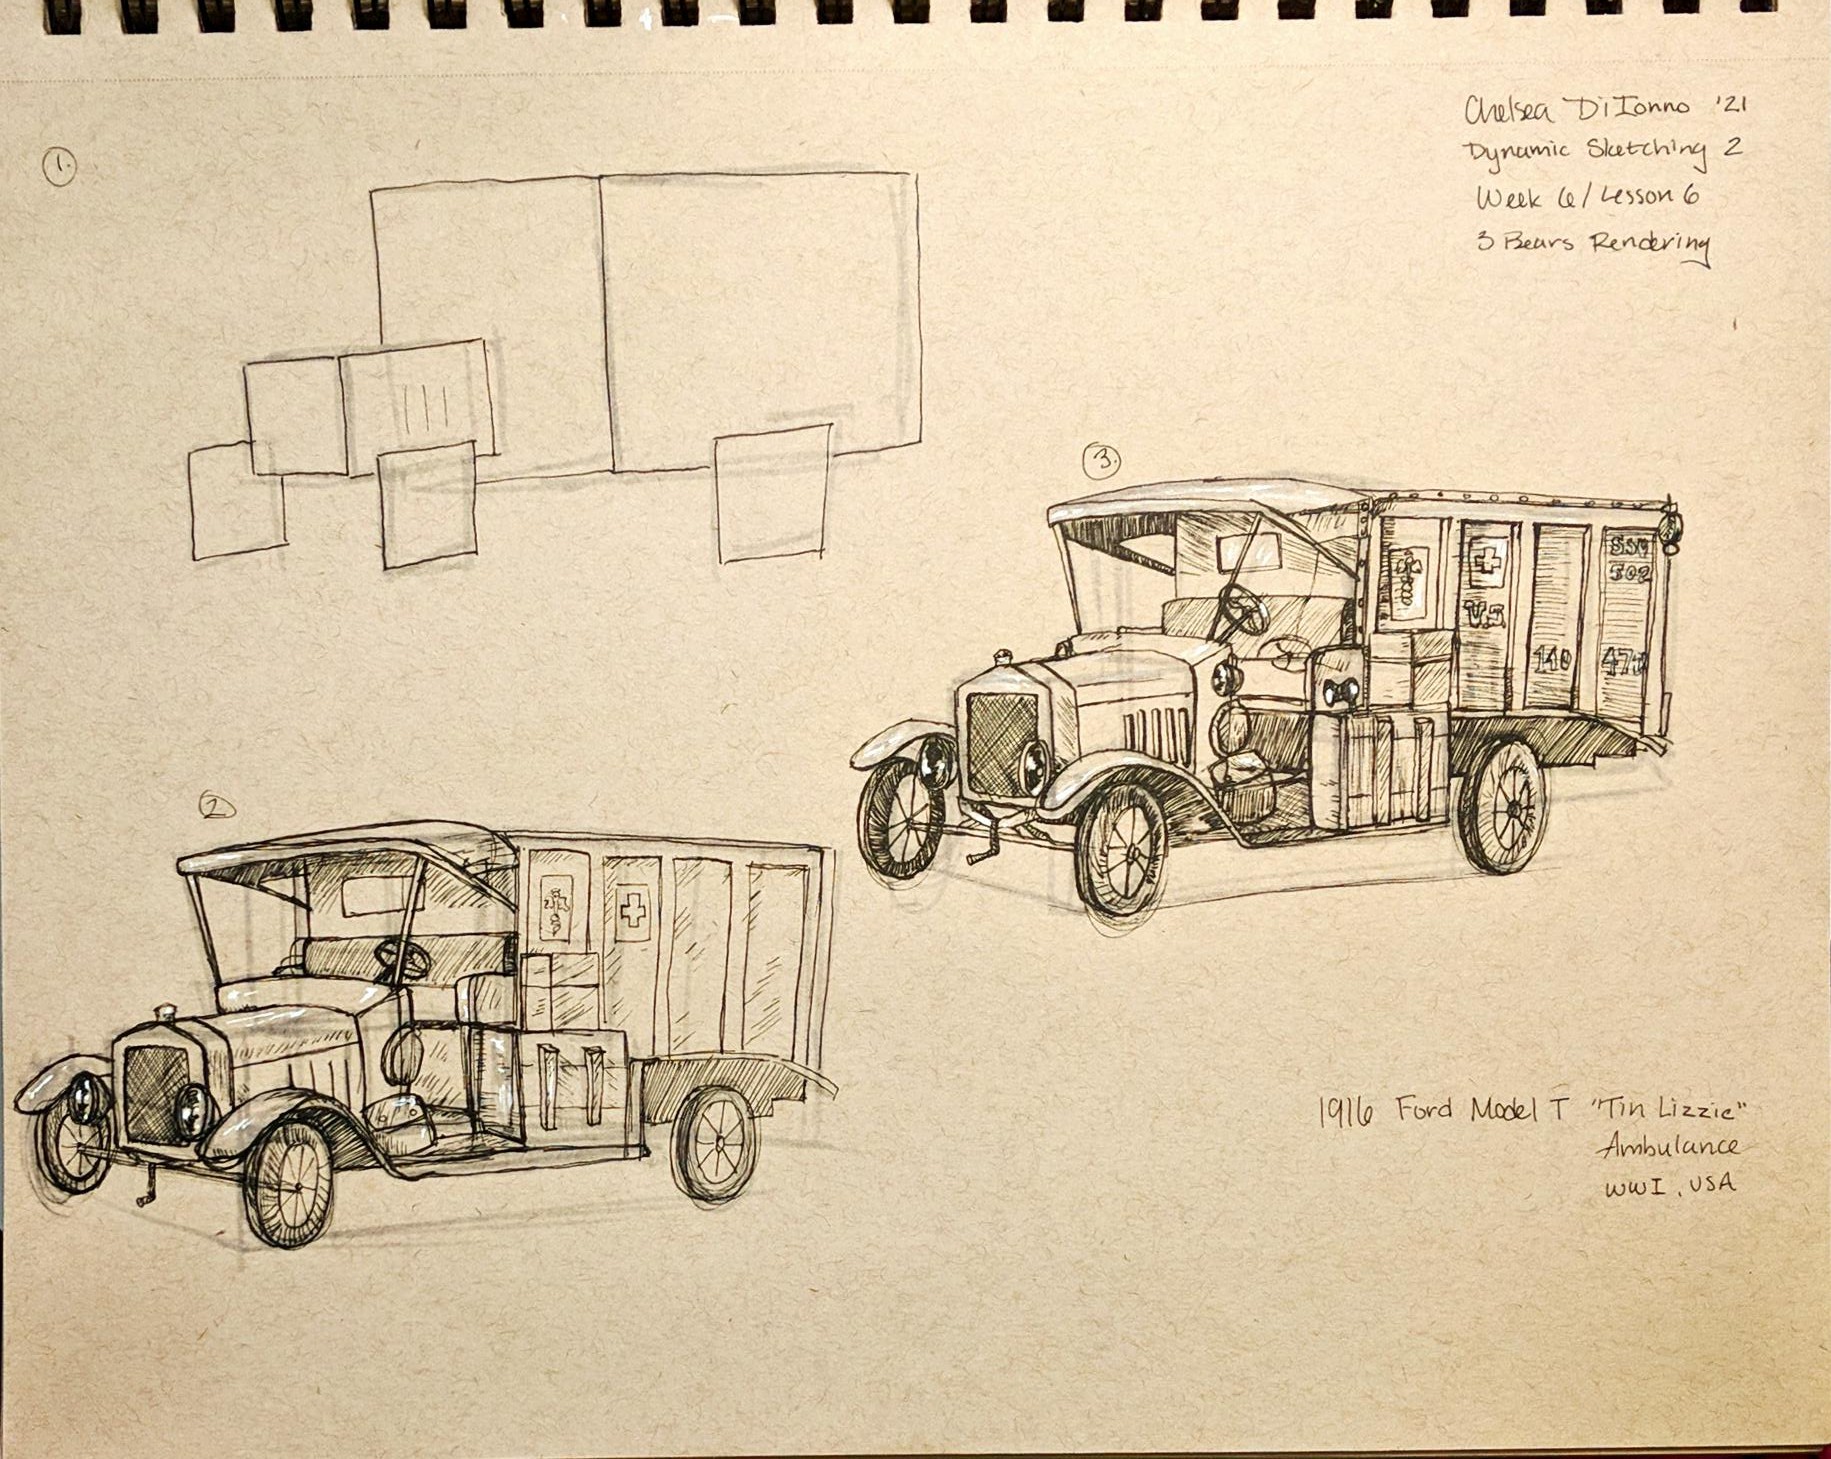 1.
Chelsea DiIonno '21
Dynamic Sketching 2
Week 6/Lesson 6
3 Bears Rendering
3.
U.S.
502
2
1916 Ford Model T "Tin Lizzie"
Ambulance
WWI, USA